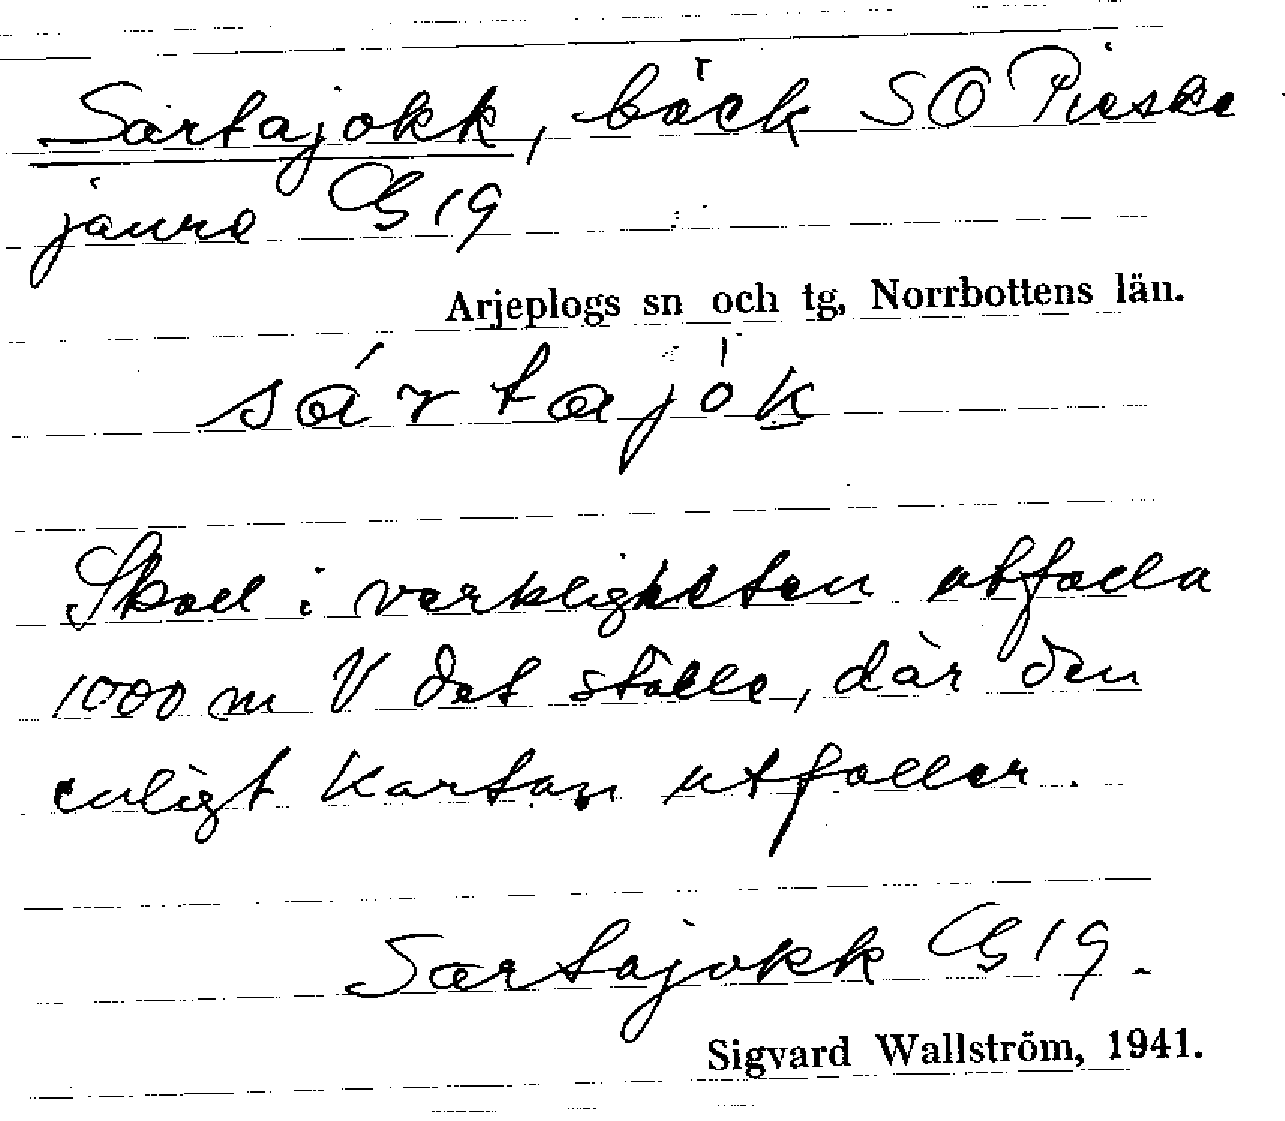 Sartajokk, bäck SO Pieske
jaure G19
Arjeplogs sn och tg, Norrbottens län.
sártajók̲
Skall i verkligheten utfalla
1000 m V det ställe, där den
enligt kartan utfaller.
Sartajokk G19.
Sigvard Wallström, 1941.